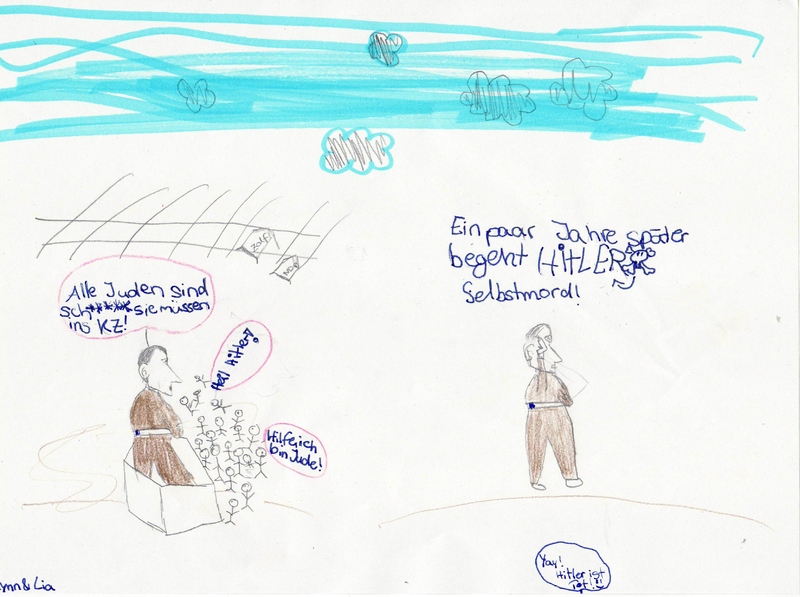 Ein paar Jahre später
begeht HiTLER
Selbstmord!
Alle Juden sind
sch***** sie müssen
ins KZ!
Heil Hitler!
Hilfe, ich
bin Jude!
Yay!
Hitler ist
tot!!!
ynn & Lia